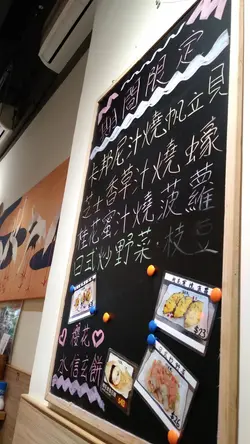 期間限定
卡邦尼汁燒帆立貝
芝士香草汁燒蠔
桂花蜜汁燒菠蘿
日式炒野菜·枝豆
櫻花
水信玄餅
$23